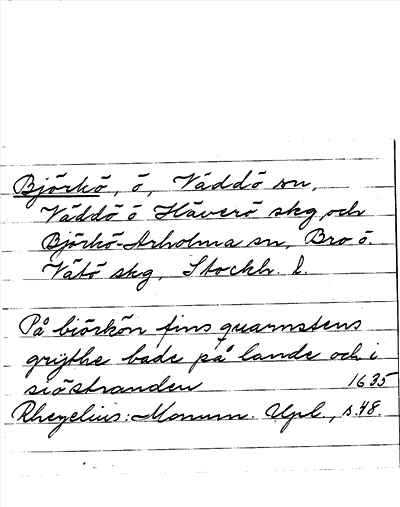 Björkö, ö, Väddö sn,
Väddö o Häverö skg, och
Björkö-Arholma sn, Bro o.
Vätö skg, Stockh. l.
På biörkön fins quarnstens
grijthe bade på lande och i
siöstranden 1635
Rhezelius: Monum. Upl., s. 48.